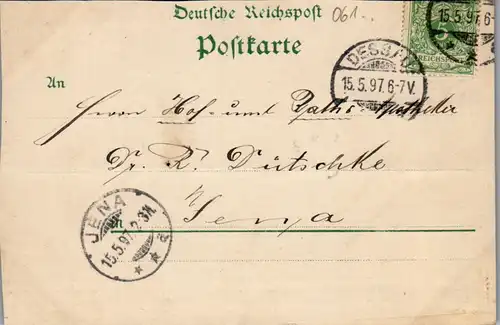 Deutsche Reichspost 061..
Postkarte
An
DESSAU
15.5.97.6-7V.
15.5.97.6-
REICHSP
Herrn Hof- und Raths-Apotheker
Dr. R. Dütschke
in Jena
JENA
15.5.97.2-3N.